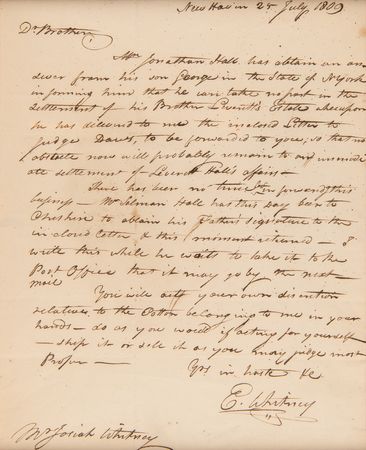 New Haven 25 July 1809
Dr Brother,
Mr Jonathan Hall has obtain an an-
swer from his son George in the State of N. york
informing him that he can take no part in the
settlement of his Brother Leverett's Estate whereupon
he has delivered to me the inclosed Letter to
Judge Daws, to be forwarded to you; so that no
obstacle now will probably remain to an immedi-
ate settlement of Leverett Hall's affairs —
There has been no time lost in forwarding this
business — Mr Selman Hall has this day been to
Cheshire to obtain his Father's signature to the
inclosed letter & this moment returned — I
write this while he waits to take it to the
Post Office that it may go by the next
mail
You will act your own discretion
relative to the Cotton belonging to me in your
hands — do as you would if acting for yourself
— ship it or sell it as you may judge most
Proper —
Yrs in haste &c
E. Whitney
Mr Josiah Whitney